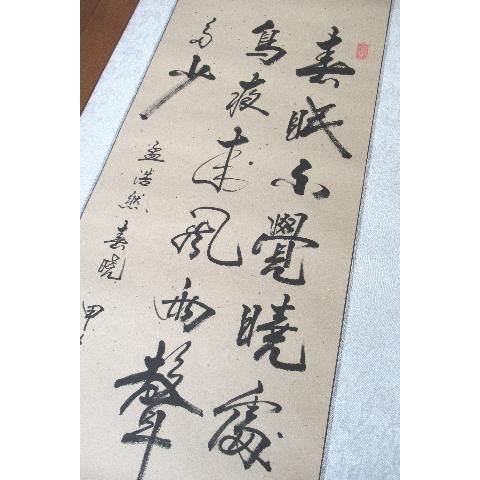 春眠不覺曉處
鳥夜来風雨聲
多少
孟浩然春曉
甲